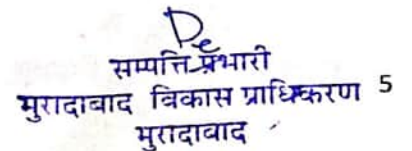 सम्पत्ति प्रभारी
मुरादाबाद विकास प्राधिकरण 5
मुरादाबाद